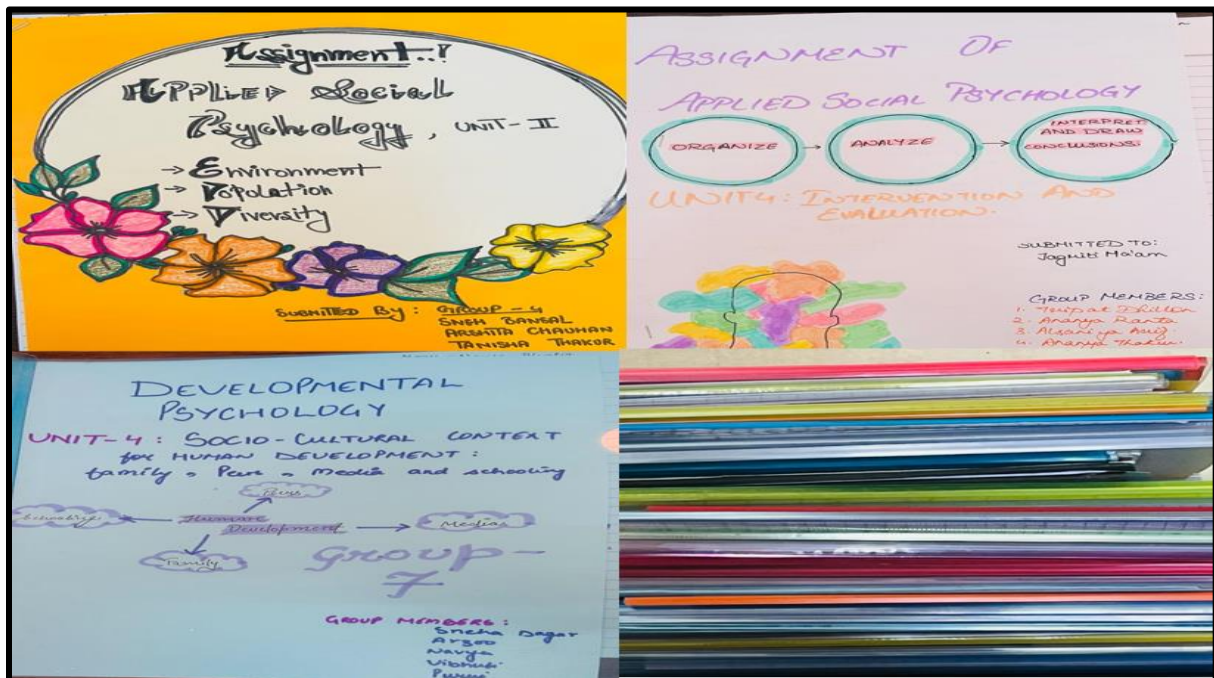 Assignment..!
Applied Social
Psychology, UNIT-II
→ Environment
→ Population
→ Diversity
SUBMITTED BY: GROUP-4
SNEH BANSAL
ARSHITA CHAUHAN
TANISHA THAKUR
ASSIGNMENT OF
APPLIED SOCIAL PSYCHOLOGY
ORGANIZE → ANALYZE → INTERPRET
AND DRAW
CONCLUSIONS.
UNIT4: INTERVENTION AND
EVALUATION.
SUBMITTED TO:
Jagriti Ma'am
GROUP MEMBERS:
1.
2. Ananya Ranta
3.
4. Ananya Thakur
DEVELOPMENTAL
PSYCHOLOGY
UNIT-4: SOCIO-CULTURAL CONTEXT
for HUMAN DEVELOPMENT:
family, Peer, Media and schooling
Human
Development
Media
Family
Group-
7
GROUP MEMBERS:
Sneha Dagar
Arzoo
Navya
Vibhuti